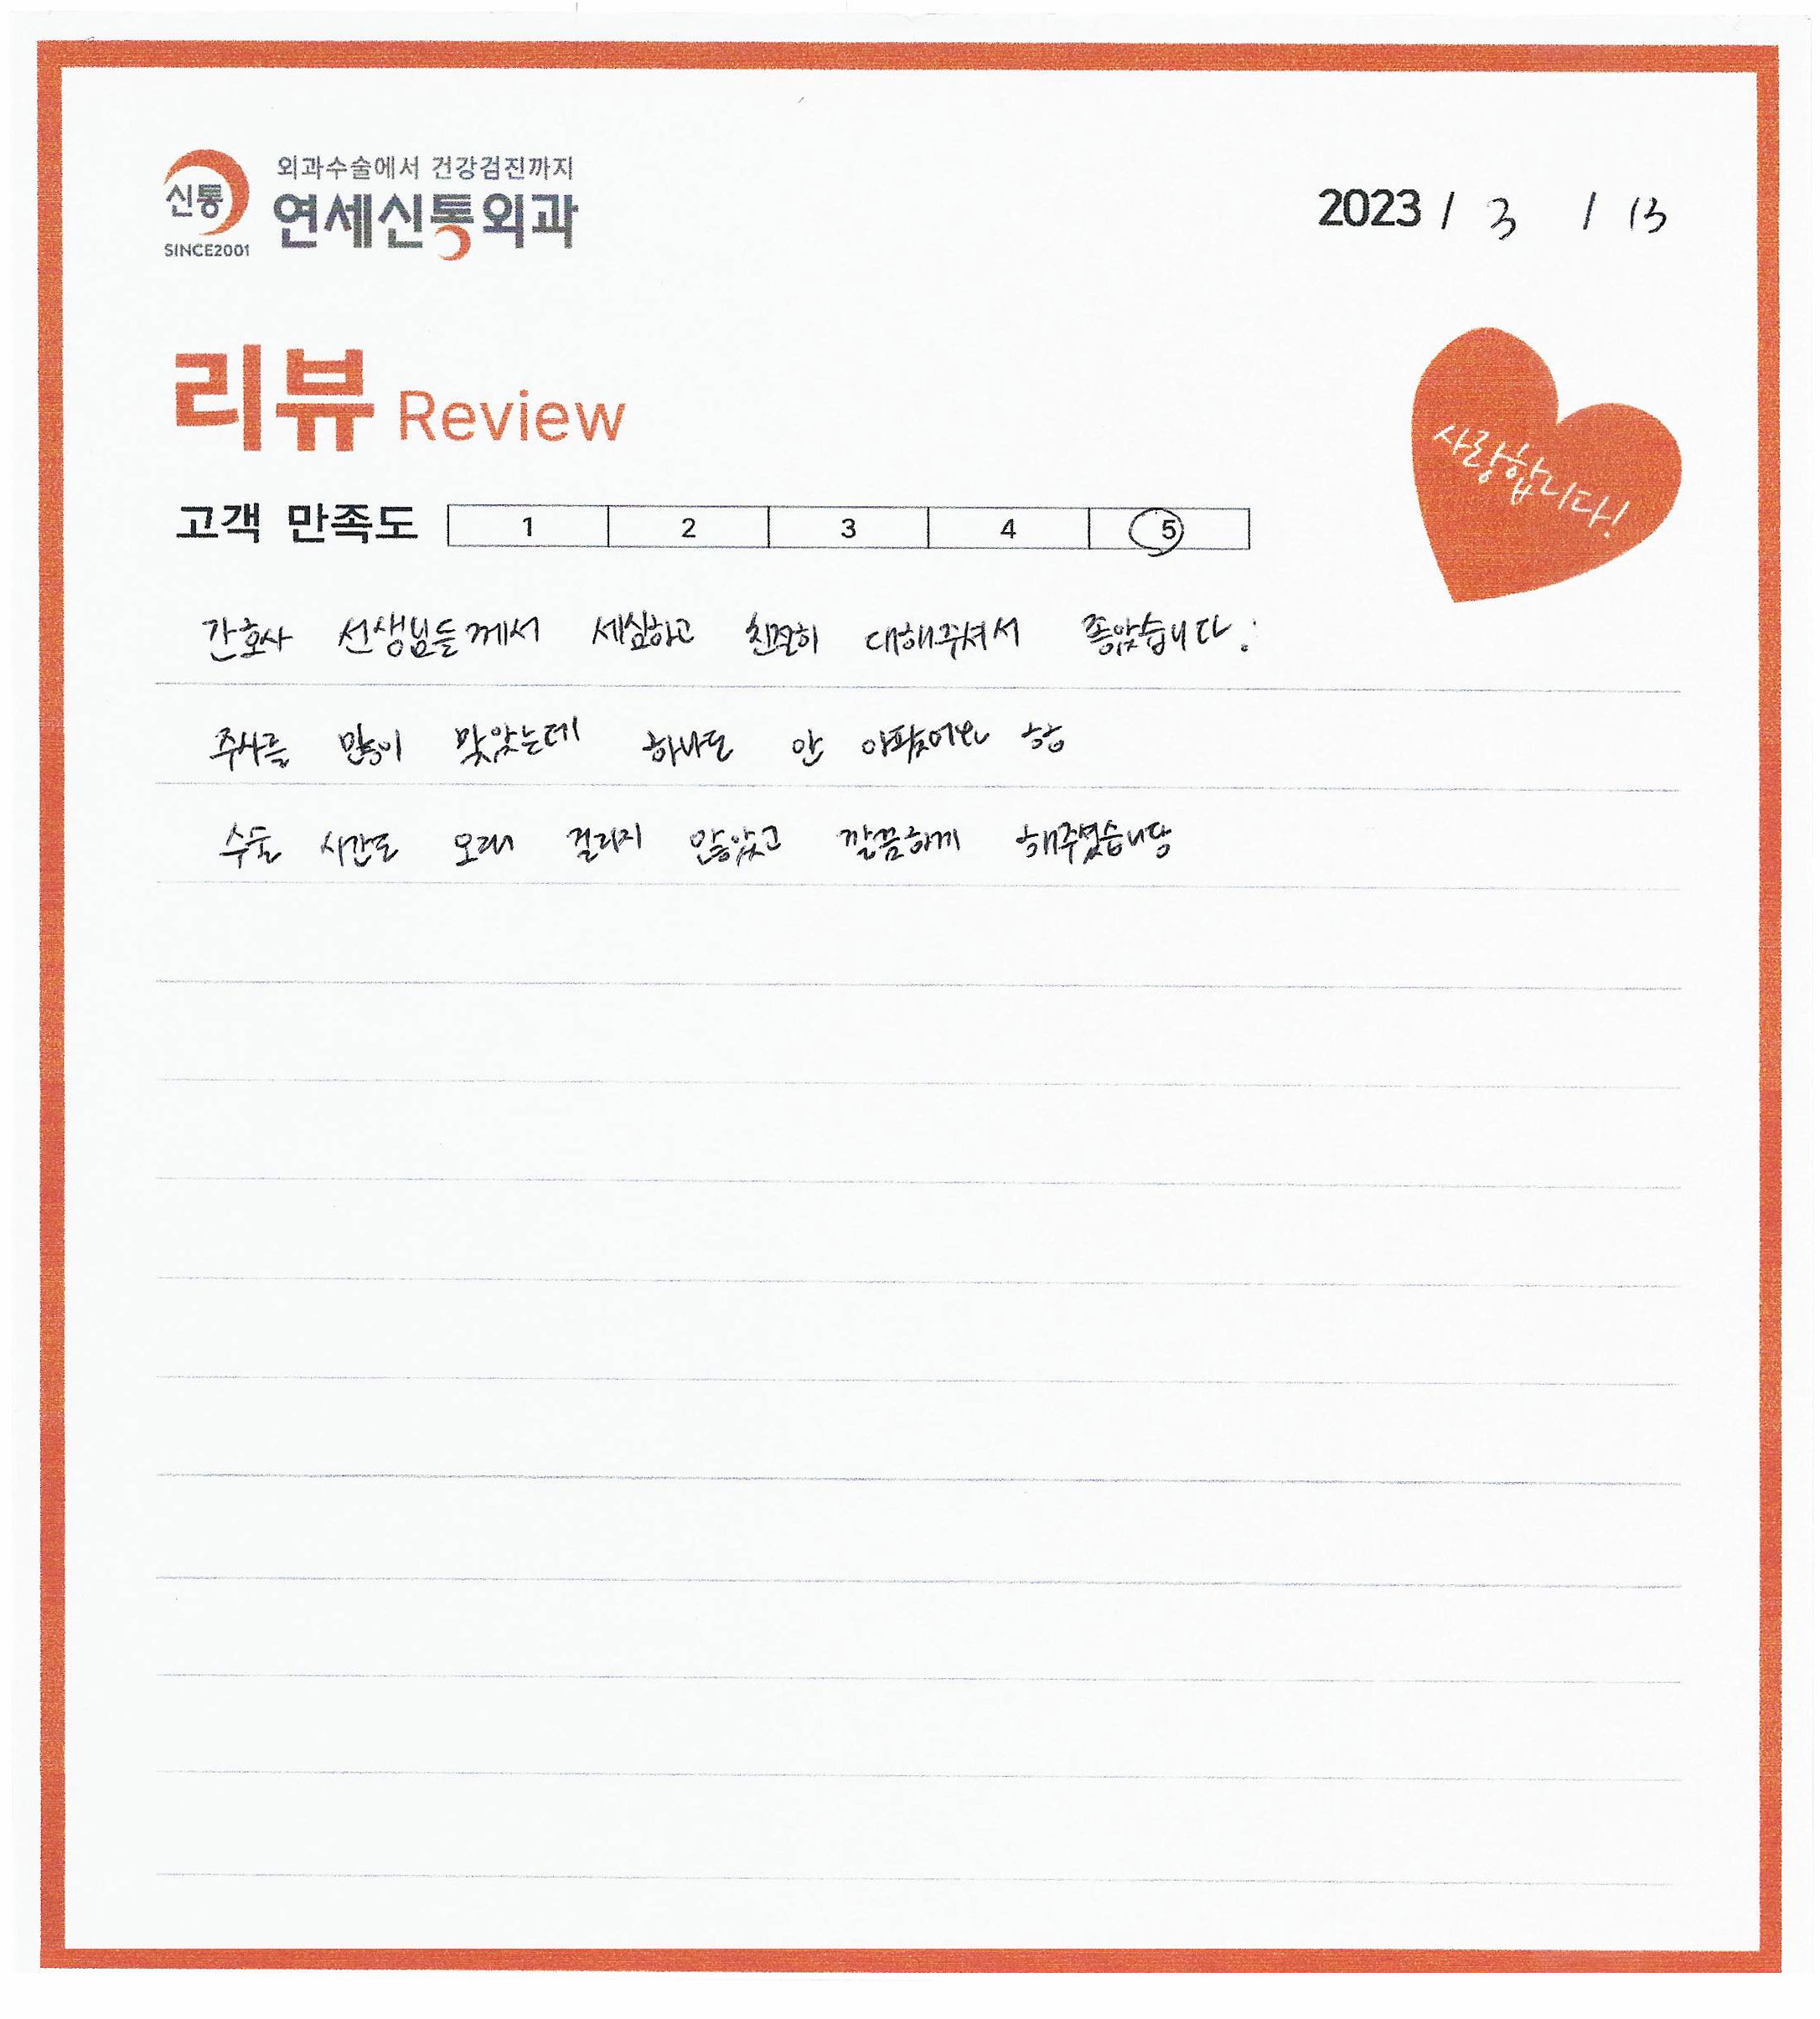 외과수술에서 건강검진까지
신통
연세신통외과
SINCE2001
2023 / 3 / 13
리뷰 Review
사랑합니다!
고객 만족도 1 2 3 4 5
간호사 선생님들께서 세심하고 친절히 대해주셔서 좋았습니다.
주사를 많이 맞았는데 하나도 안 아팠어요
수술 시간도 오래 걸리지 않았고 깔끔하게 해주셨습니당